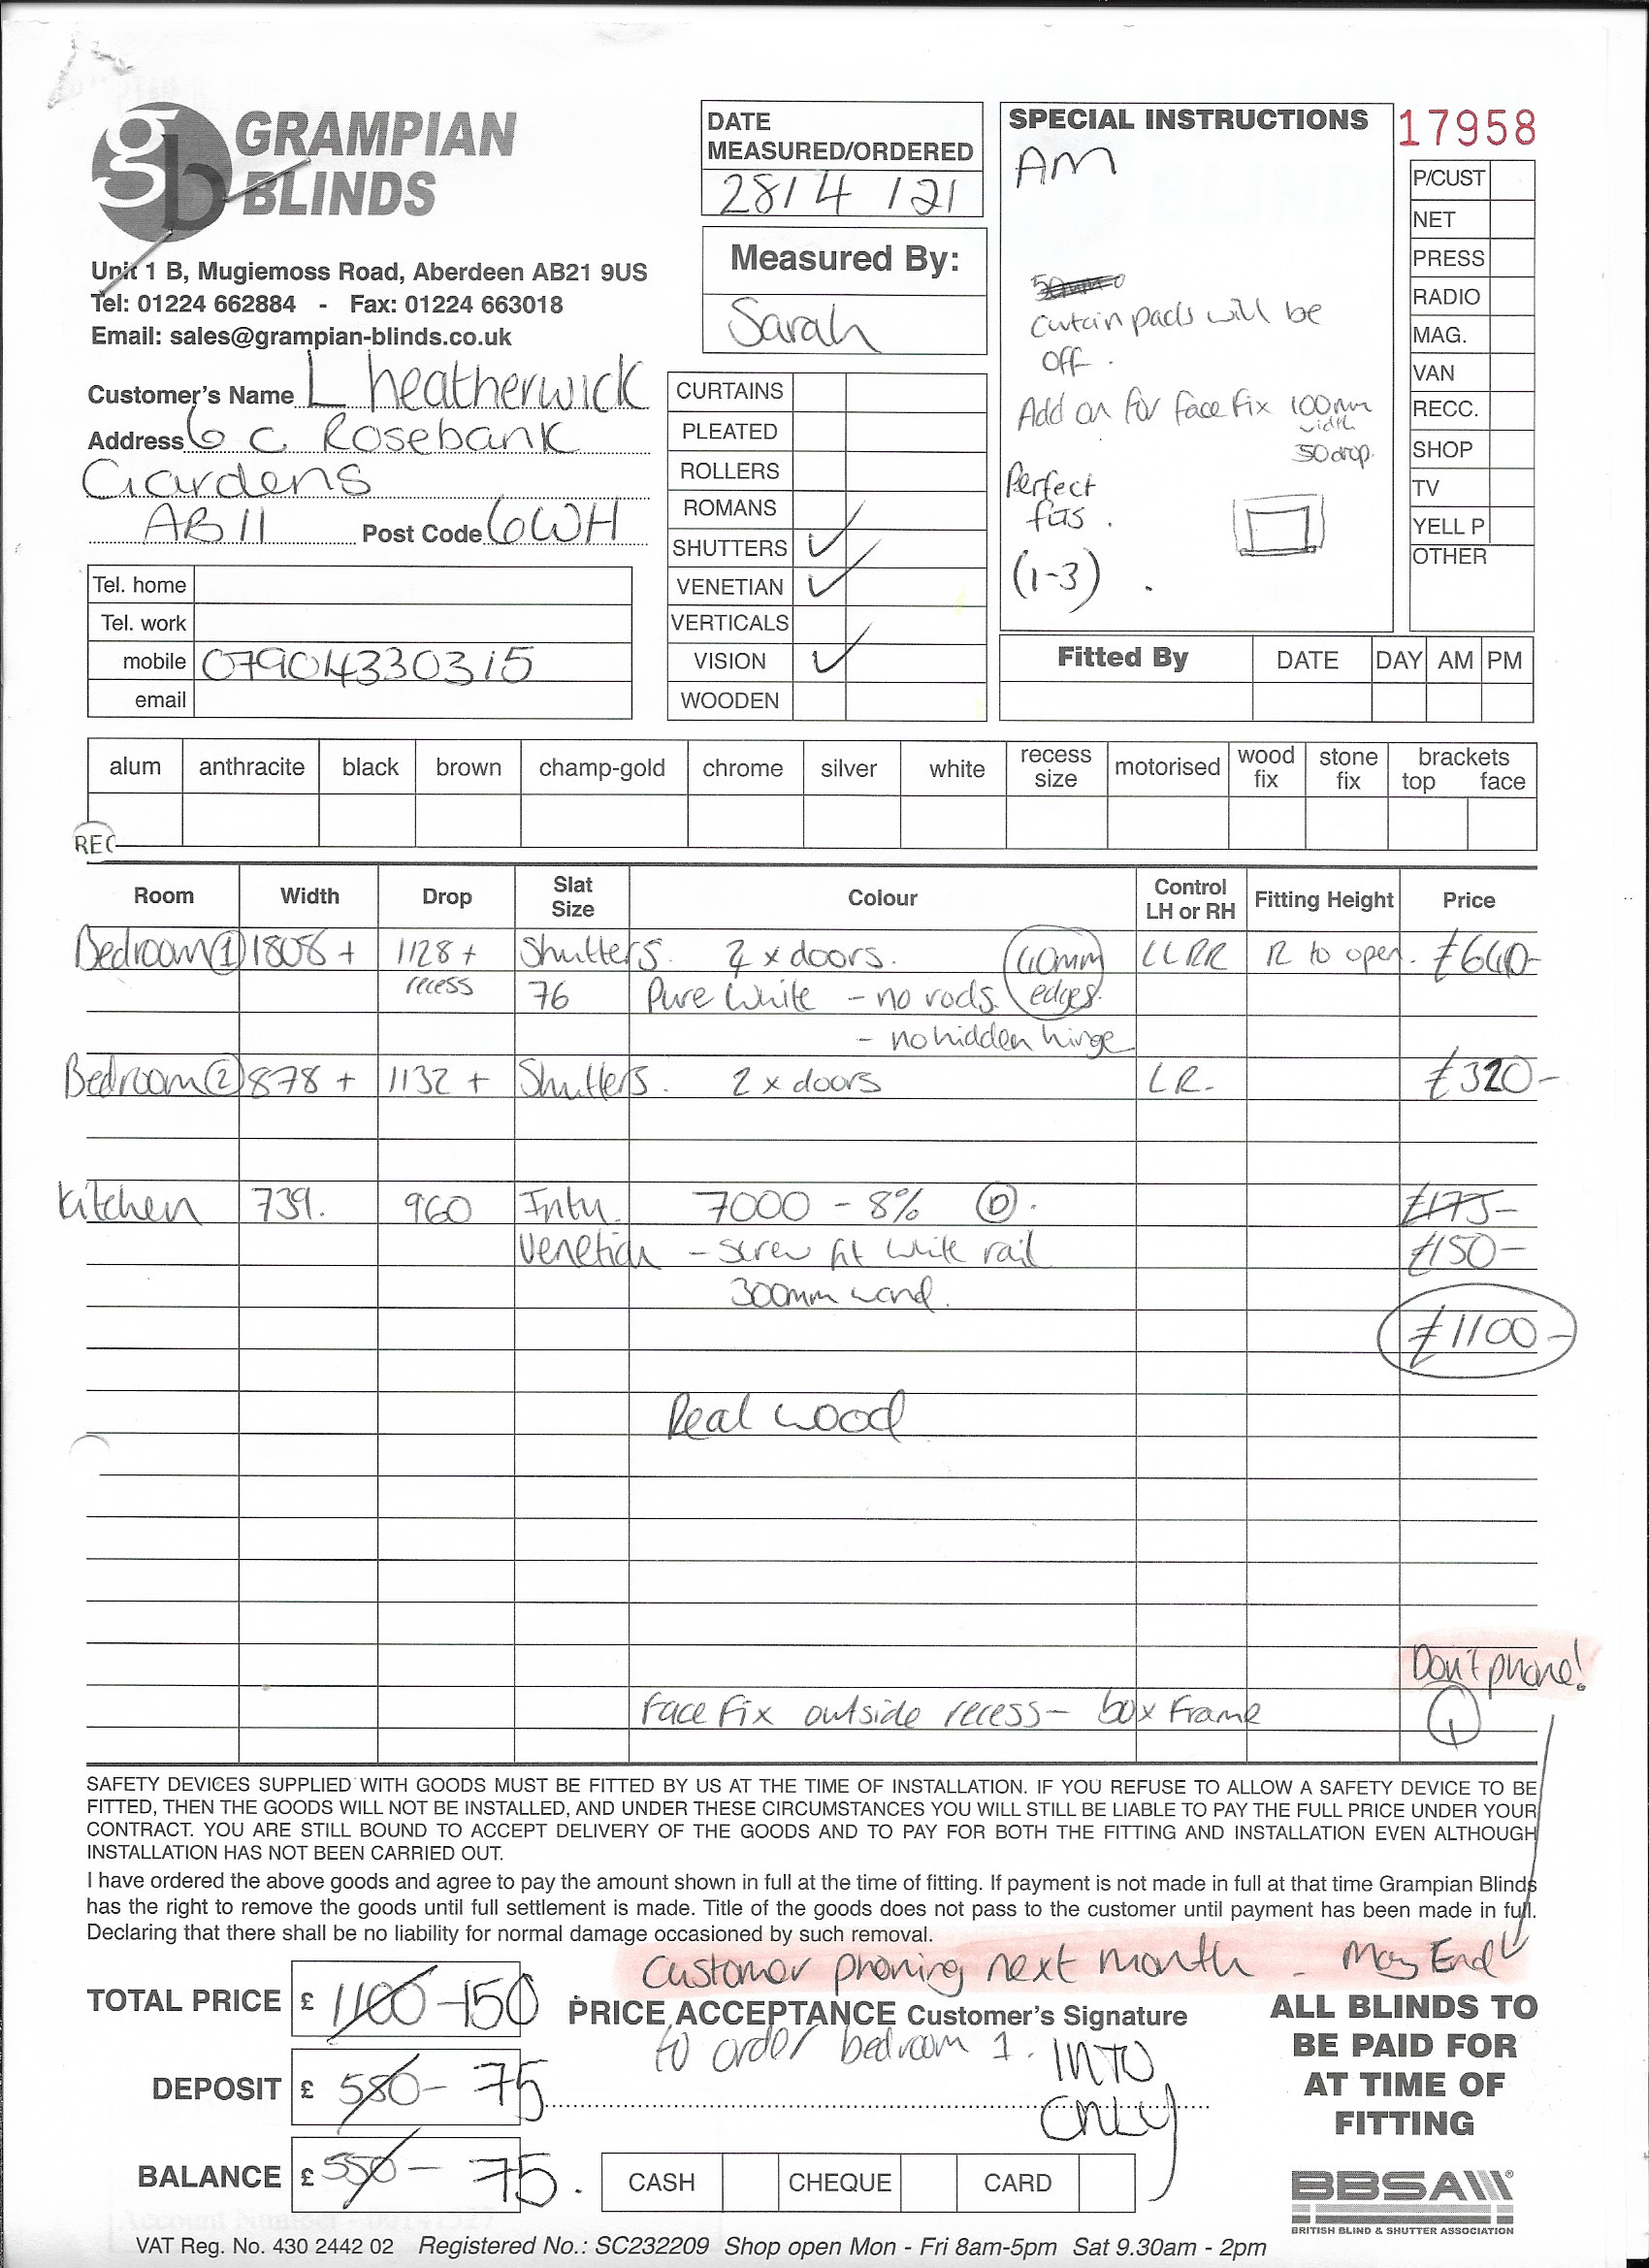 gb GRAMPIAN
BLINDS
Unit 1 B, Mugiemoss Road, Aberdeen AB21 9US
Tel: 01224 662884 - Fax: 01224 663018
Email: sales@grampian-blinds.co.uk
Customer's Name L heatherwick
Address 6 C Rosebank
Gardens
AB11 Post Code 6WH
Tel. home
Tel. work
mobile 07904330315
email
DATE
MEASURED/ORDERED
28/4/21
Measured By:
Sarah
CURTAINS
PLEATED
ROLLERS
ROMANS
SHUTTERS ✓
VENETIAN ✓
VERTICALS
VISION ✓
WOODEN
SPECIAL INSTRUCTIONS
AM
Curtain pads will be
off.
Add on for face fix 100mm
width
50 drop.
Perfect
fits.
(1-3)
17958
P/CUST
NET
PRESS
RADIO
MAG.
VAN
RECC.
SHOP
TV
YELL P
OTHER
Fitted By DATE DAY AM PM
alum anthracite black brown champ-gold chrome silver white recess size motorised wood fix stone fix brackets top face
REC
Room Width Drop Slat Size Colour Control LH or RH Fitting Height Price
Bedroom 1 1808 + 1128 + Shutters. 4 x doors. 60mm LLRR R to open. £640-
recess 76 Pure White - no rods edges.
- no hidden hinge
Bedroom 2 878 + 1132 + Shutters. 2 x doors LR- £320-
Kitchen 739. 960 Intu 7000 - 8% D. £175-
Venetian - screw fit white rail £150-
300mm wand.
£1100-
Real wood
Don't phone!
Face Fix outside recess - box Frame
SAFETY DEVICES SUPPLIED WITH GOODS MUST BE FITTED BY US AT THE TIME OF INSTALLATION. IF YOU REFUSE TO ALLOW A SAFETY DEVICE TO BE
FITTED, THEN THE GOODS WILL NOT BE INSTALLED, AND UNDER THESE CIRCUMSTANCES YOU WILL STILL BE LIABLE TO PAY THE FULL PRICE UNDER YOUR
CONTRACT. YOU ARE STILL BOUND TO ACCEPT DELIVERY OF THE GOODS AND TO PAY FOR BOTH THE FITTING AND INSTALLATION EVEN ALTHOUGH
INSTALLATION HAS NOT BEEN CARRIED OUT.
I have ordered the above goods and agree to pay the amount shown in full at the time of fitting. If payment is not made in full at that time Grampian Blinds
has the right to remove the goods until full settlement is made. Title of the goods does not pass to the customer until payment has been made in full.
Declaring that there shall be no liability for normal damage occasioned by such removal.
Customer phoning next month - May End
TOTAL PRICE £ 1100 - 150
PRICE ACCEPTANCE Customer's Signature
to order bedroom 1. INTU
ONLY
DEPOSIT £ 550 - 75
BALANCE £ 550 - 75.
CASH CHEQUE CARD
ALL BLINDS TO
BE PAID FOR
AT TIME OF
FITTING
BBSA
BRITISH BLIND & SHUTTER ASSOCIATION
VAT Reg. No. 430 2442 02 Registered No.: SC232209 Shop open Mon - Fri 8am-5pm Sat 9.30am - 2pm